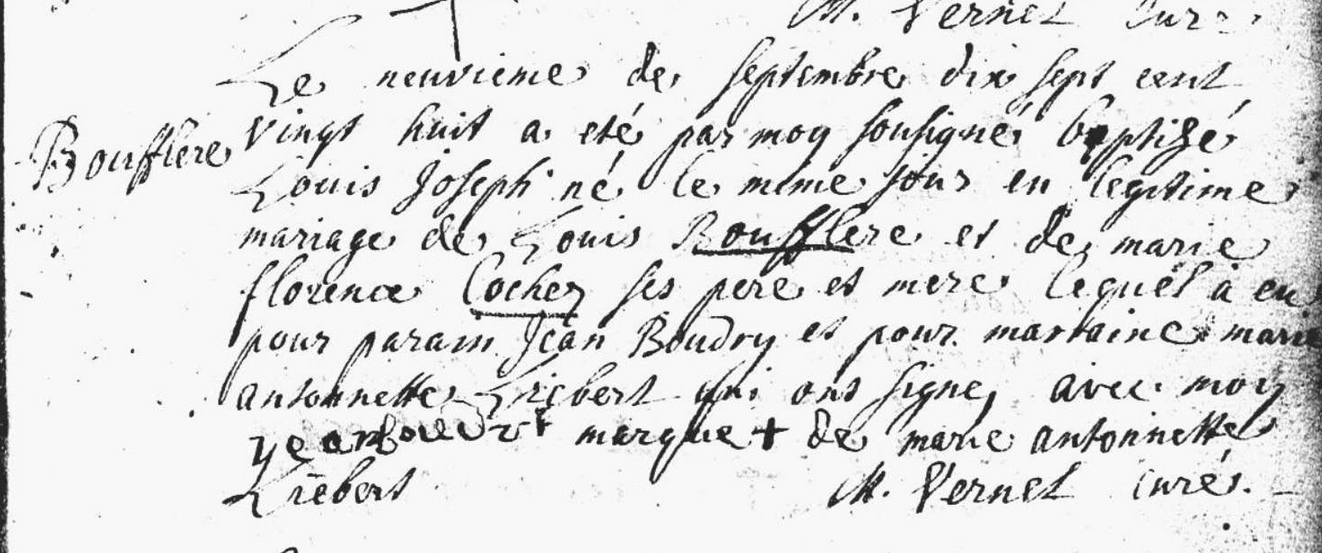 M. Vernet Cur
Le neuvieme de septembre dix sept cent
Boufflere
vingt huit a eté par moy sousigné baptizé
Louis Joseph né le meme jour en legitime
mariage de Louis Boufflere et de marie
florence Cochez ses pere et mere lequel à eu
pour parain Jean Boudry et pour maraine marie
antonnette Liebert qui ont signe avec moy
marque + de marie antonnette
Liebert M. Vernet curé.